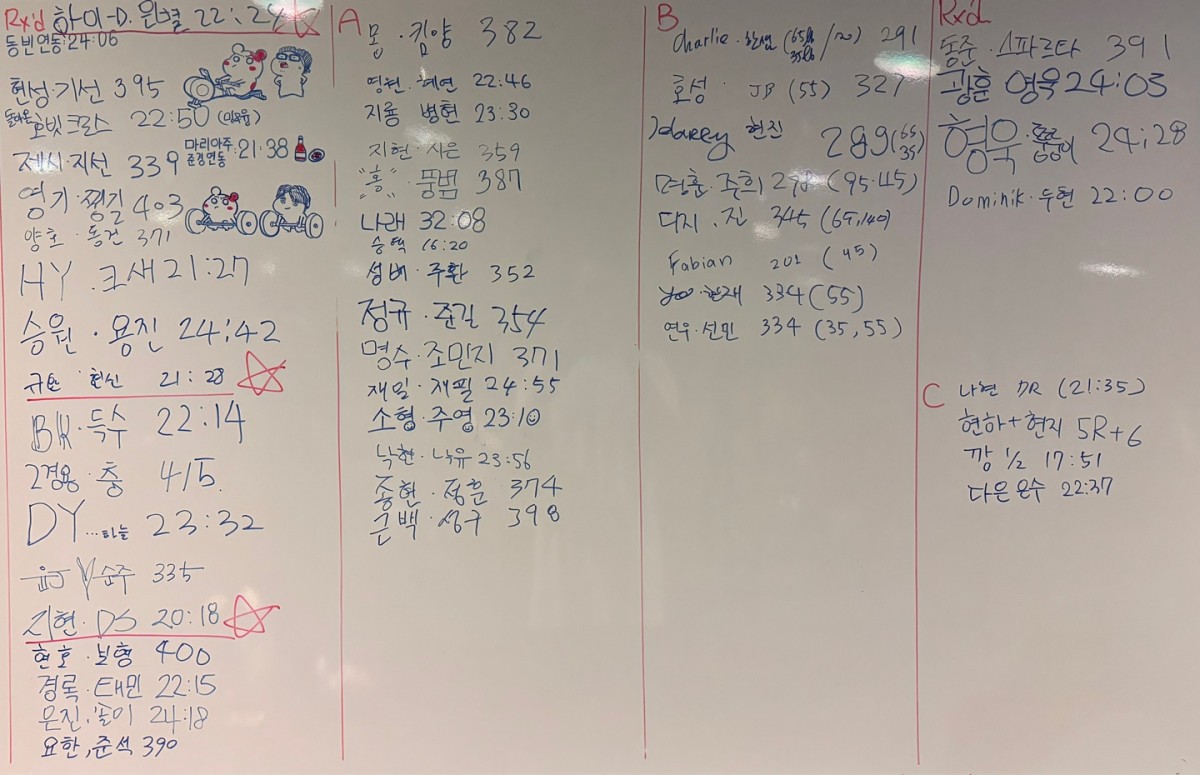 Rx'd 하이-D. 은별 22:24
등빈연동:24:06
현성·기선 395
호빗크로스 22:50
마리아주 21:38
제시·지선 339
영기·찡길 403
양호·동건 371
HY.크새 21:27
승원·용진 24:42
규현 현신 21:28
BK·득수 22:14
2경용·충 415.
DY...하늘 23:32
순주 335
지현·DS 20:18
현호·보형 400
경록·태민 22:15
은진·송이 24:18
요한,준석 390
A
몽·킴양 382
영현·혜연 22:46
지룡 병현 23:30
지현·사은 359
"홍" 풍범 387
나래 32:08
승혁 16:20
성비·주환 352
정규·준길 354
명수·조민지 371
재밀·재필 24:55
소형·주영 23:10
낙현·낙유 23:56
종현·정훈 374
근백·성구 398
B
Charlie·한샘 (65lb/20) 291
35lb
호성·JB (55) 327
Harry 현진 289 (65
35)
명훈·주희 298 (95·45)
디지.진 345 (65,140)
Fabian 201 (45)
현재 334 (55)
연우·선민 334 (35,55)
Rx'd
동준·스파르타 391
광훈 영욱 24:03
형욱 24:28
Dominik·두현 22:00
C
나현 DR (21:35)
현하+현지 5R+6
깡 1/2 17:51
다은은수 22:37